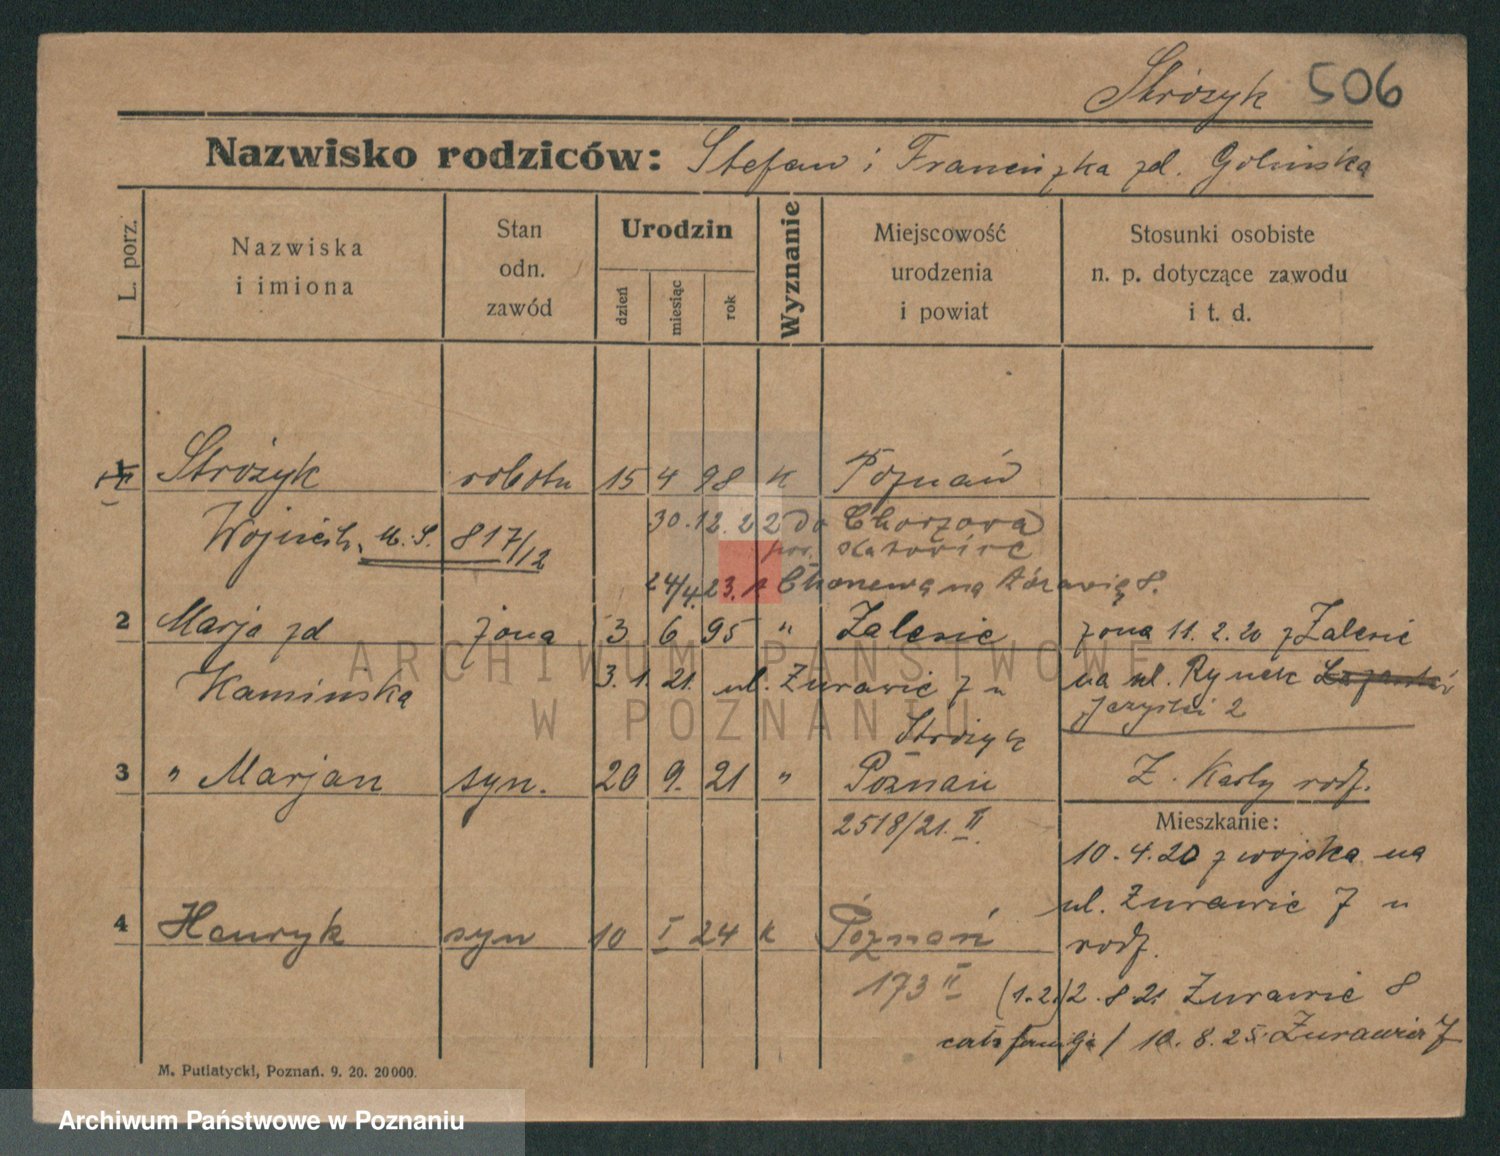 Stróżyk 506
Nazwisko rodziców: Stefan i Franciszka zd. Golińska
L. porz.
Nazwiska i imiona
Stan odn. zawód
Urodzin
dzień
miesiąc
rok
Wyznanie
Miejscowość urodzenia i powiat
Stosunki osobiste n. p. dotyczące zawodu i t. d.
1 Stróżyk robotn 15 4 98 k Poznań
Wojciech, U. S. 817/12 30.12.22 do Chorzowa
pow. Katowice
24/4.23. z Chorzowa na Żórawią 8.
2 Marja zd żona 3 6 95 " Zalesie żona 11.2.20 z Zalesie
Kamińska 3.1.21. ul. Żurawie 7 u na ul. Rynek
Stróżyk Jerzycki 2
3 " Marjan syn. 20 9. 21 " Poznań Z. Karty rodz.
2518/21. II
Mieszkanie:
10.4.20 z wojska na
ul. Żurawie 7 u
4 Henryk syn 10 I 24 k Poznań rodz.
173 II (1.2.) 2.8.21 Żurawie 8
cała familja / 10.8.25. Żurawia 7
M. Putiatycki, Poznań. 9. 20. 20000.
ARCHIWUM PAŃSTWOWE
W POZNANIU
Archiwum Państwowe w Poznaniu